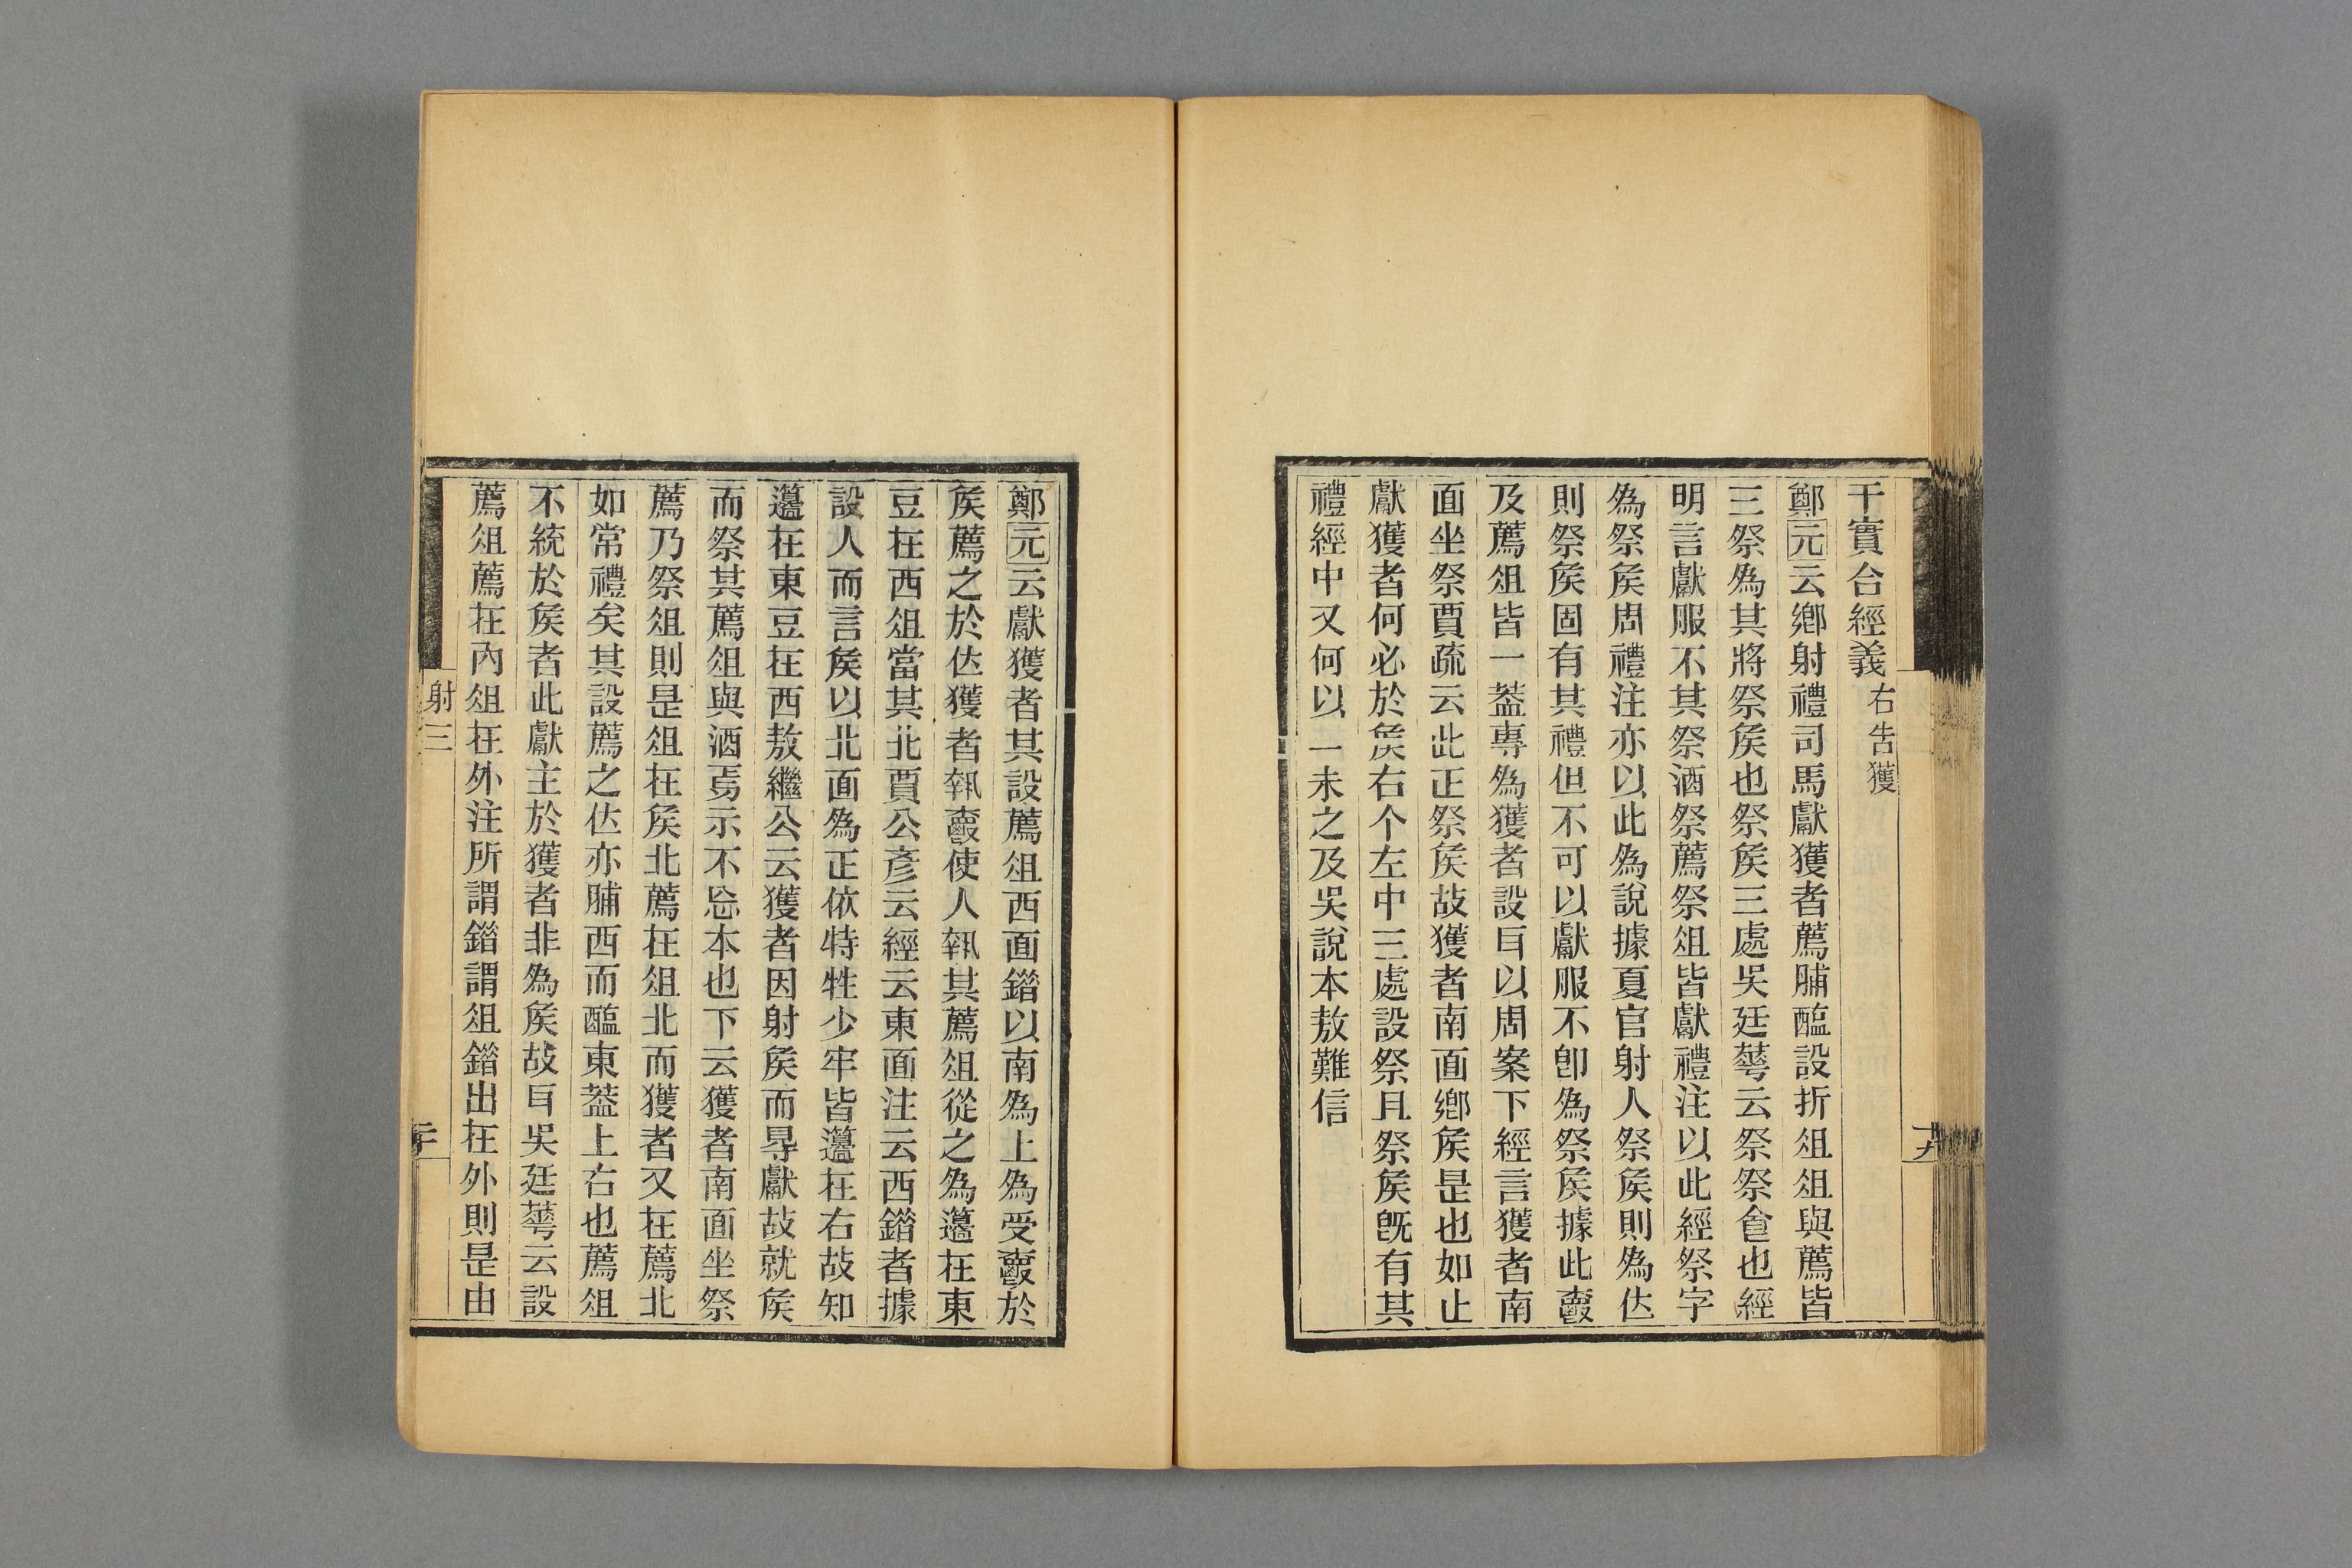 干實合經義右告獲
鄭元云鄉射禮司馬獻獲者薦脯醢設折俎俎與薦皆
三祭為其將祭矦也祭矦三處吳廷蕚云祭祭㑹也經
明言獻服不其祭酒祭薦祭俎皆獻禮注以此經祭字
為祭矦周禮注亦以此為說據夏官射人祭矦則為佐
則祭矦固有其禮但不可以獻服不卽為祭矦據此𧝓
及薦俎皆一葢專為獲者設㠯以周案下經言獲者南
面坐祭賈疏云此正祭矦故獲者南面鄉矦是也如止
獻獲者何必於矦右个左中三處設祭且祭矦旣有其
禮經中又何以一未之及吳說本敖難信
鄭元云獻獲者其設薦俎西面錯以南為上為受爵於
矦薦之於位獲者執爵使人執其薦俎從之為籩在東
豆在西俎當其北賈公彥云經云東面注云西錯者據
設人而言矦以北面為正依特牲少牢皆籩在右故知
籩在東豆在西敖繼公云獲者因射矦而得獻故就矦
而祭其薦俎與酒焉示不忘本也下云獲者南面坐祭
薦乃祭俎則是俎在矦北薦在俎北而獲者又在薦北
如常禮矣其設薦之位亦脯西而醢東葢上右也薦俎
不統於矦者此獻主於獲者非為矦故㠯吳廷蕚云設
薦俎薦在內俎在外注所謂錯謂俎錯出在外則是由
射三
二十
十九